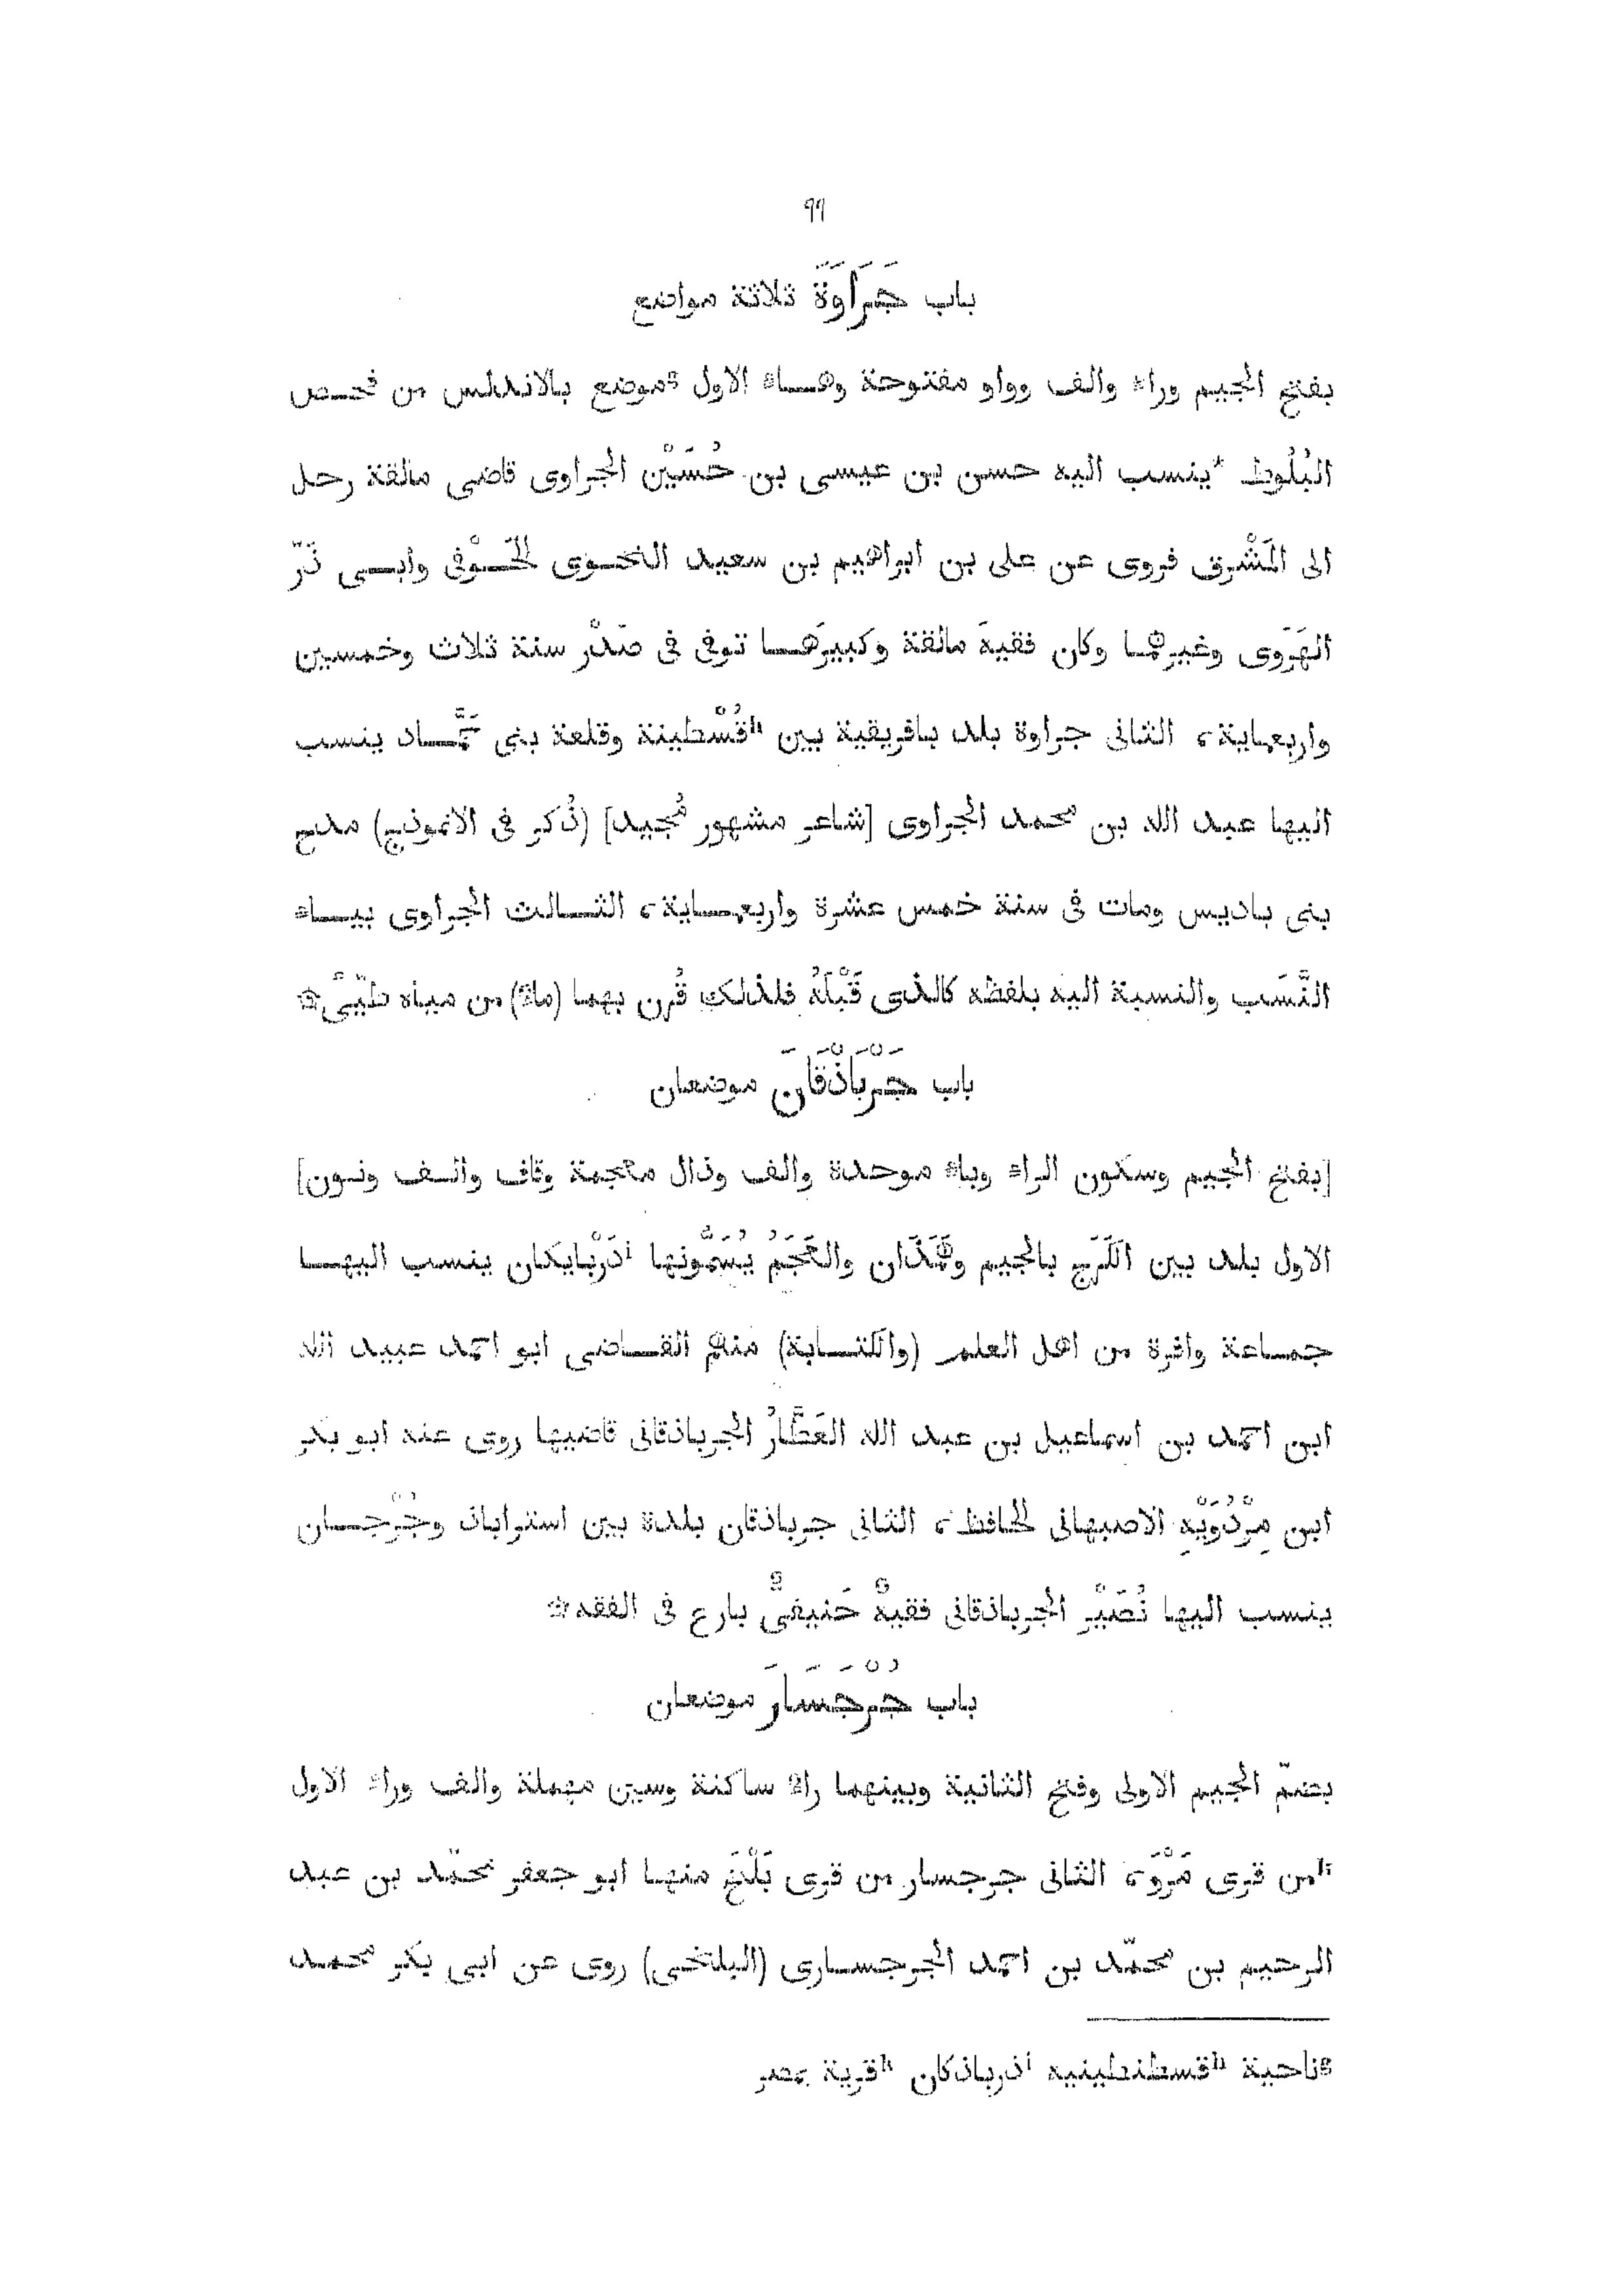 ٩٩
باب جَرَاوَةَ ثلاثة مواضع
بفتح الجيم وراء والف وواو مفتوحة وهاء الاول gموضع بالاندلس من فحص
البُلُوط *ينسب اليه حسن بن عيسى بن حُسَيْن الجراوى قاضى مالقة رحل
الى المَشْرق فروى عن على بن ابراهيم بن سعيد النحوى الحَوْفى وابى ذَرّ
الهَرَوى وغيرهما وكان فقيهَ مالقة وكبيرَها توفى فى صَدْر سنة ثلاث وخمسين
واربعماية، الثانى جراوة بلد بافريقية بين hقُسْطينة وقلعة بنى حَمَّاد ينسب
اليها عبد الله بن محمد الجراوى [شاعر مشهور مُجيد] (ذُكر فى الانموذج) مدح
بنى باديس ومات فى سنة خمس عشرة واربعماية، الثالث الجراوى بياء
النَّسَب والنسبة اليه بلفظه كالذى قَبْلَهُ فلذلك قُرن بهما (ماءٌ) من مياه طَيِّىٍ ۞
باب جَرْبَاذْقَانَ موضعان
[بفتح الجيم وسكون الراء وباء موحدة والف وذال معجمة وقاف والف ونون]
الاول بلد بين الكَرَج بالجيم وهَمَذَان والعَجَمُ يُسَمُّونها iدَرْبايكان ينسب اليها
جماعة وافرة من اهل العلم (والكتابة) منهم القاضى ابو احمد عبيد الله
ابن احمد بن اسماعيل بن عبد الله العَطَّارُ الجرباذقانى قاضيها روى عنه ابو بكر
ابن مِرْدُوَيْهِ الاصبهانى الحافظ، الثانى جرباذقان بلدة بين استراباذ وجُرْجان
ينسب اليها نُصَيْر الجرباذقانى فقيهٌ حَنيفىٌّ بارع فى الفقه ۞
باب جُرْجَسَارَ موضعان
بضمّ الجيم الاولى وفتح الثانية وبينهما راءٌ ساكنة وسين مهملة والف وراء الاول
kمن قرى مَرْوَ، الثانى جرجسار من قرى بَلْخَ منها ابو جعفر محمّد بن عبد
الرحيم بن محمّد بن احمد الجرجسارى (البلخى) روى عن ابى بكر محمد
gناحية hقسطنطينيه iذرباذكان kقرية بمصر